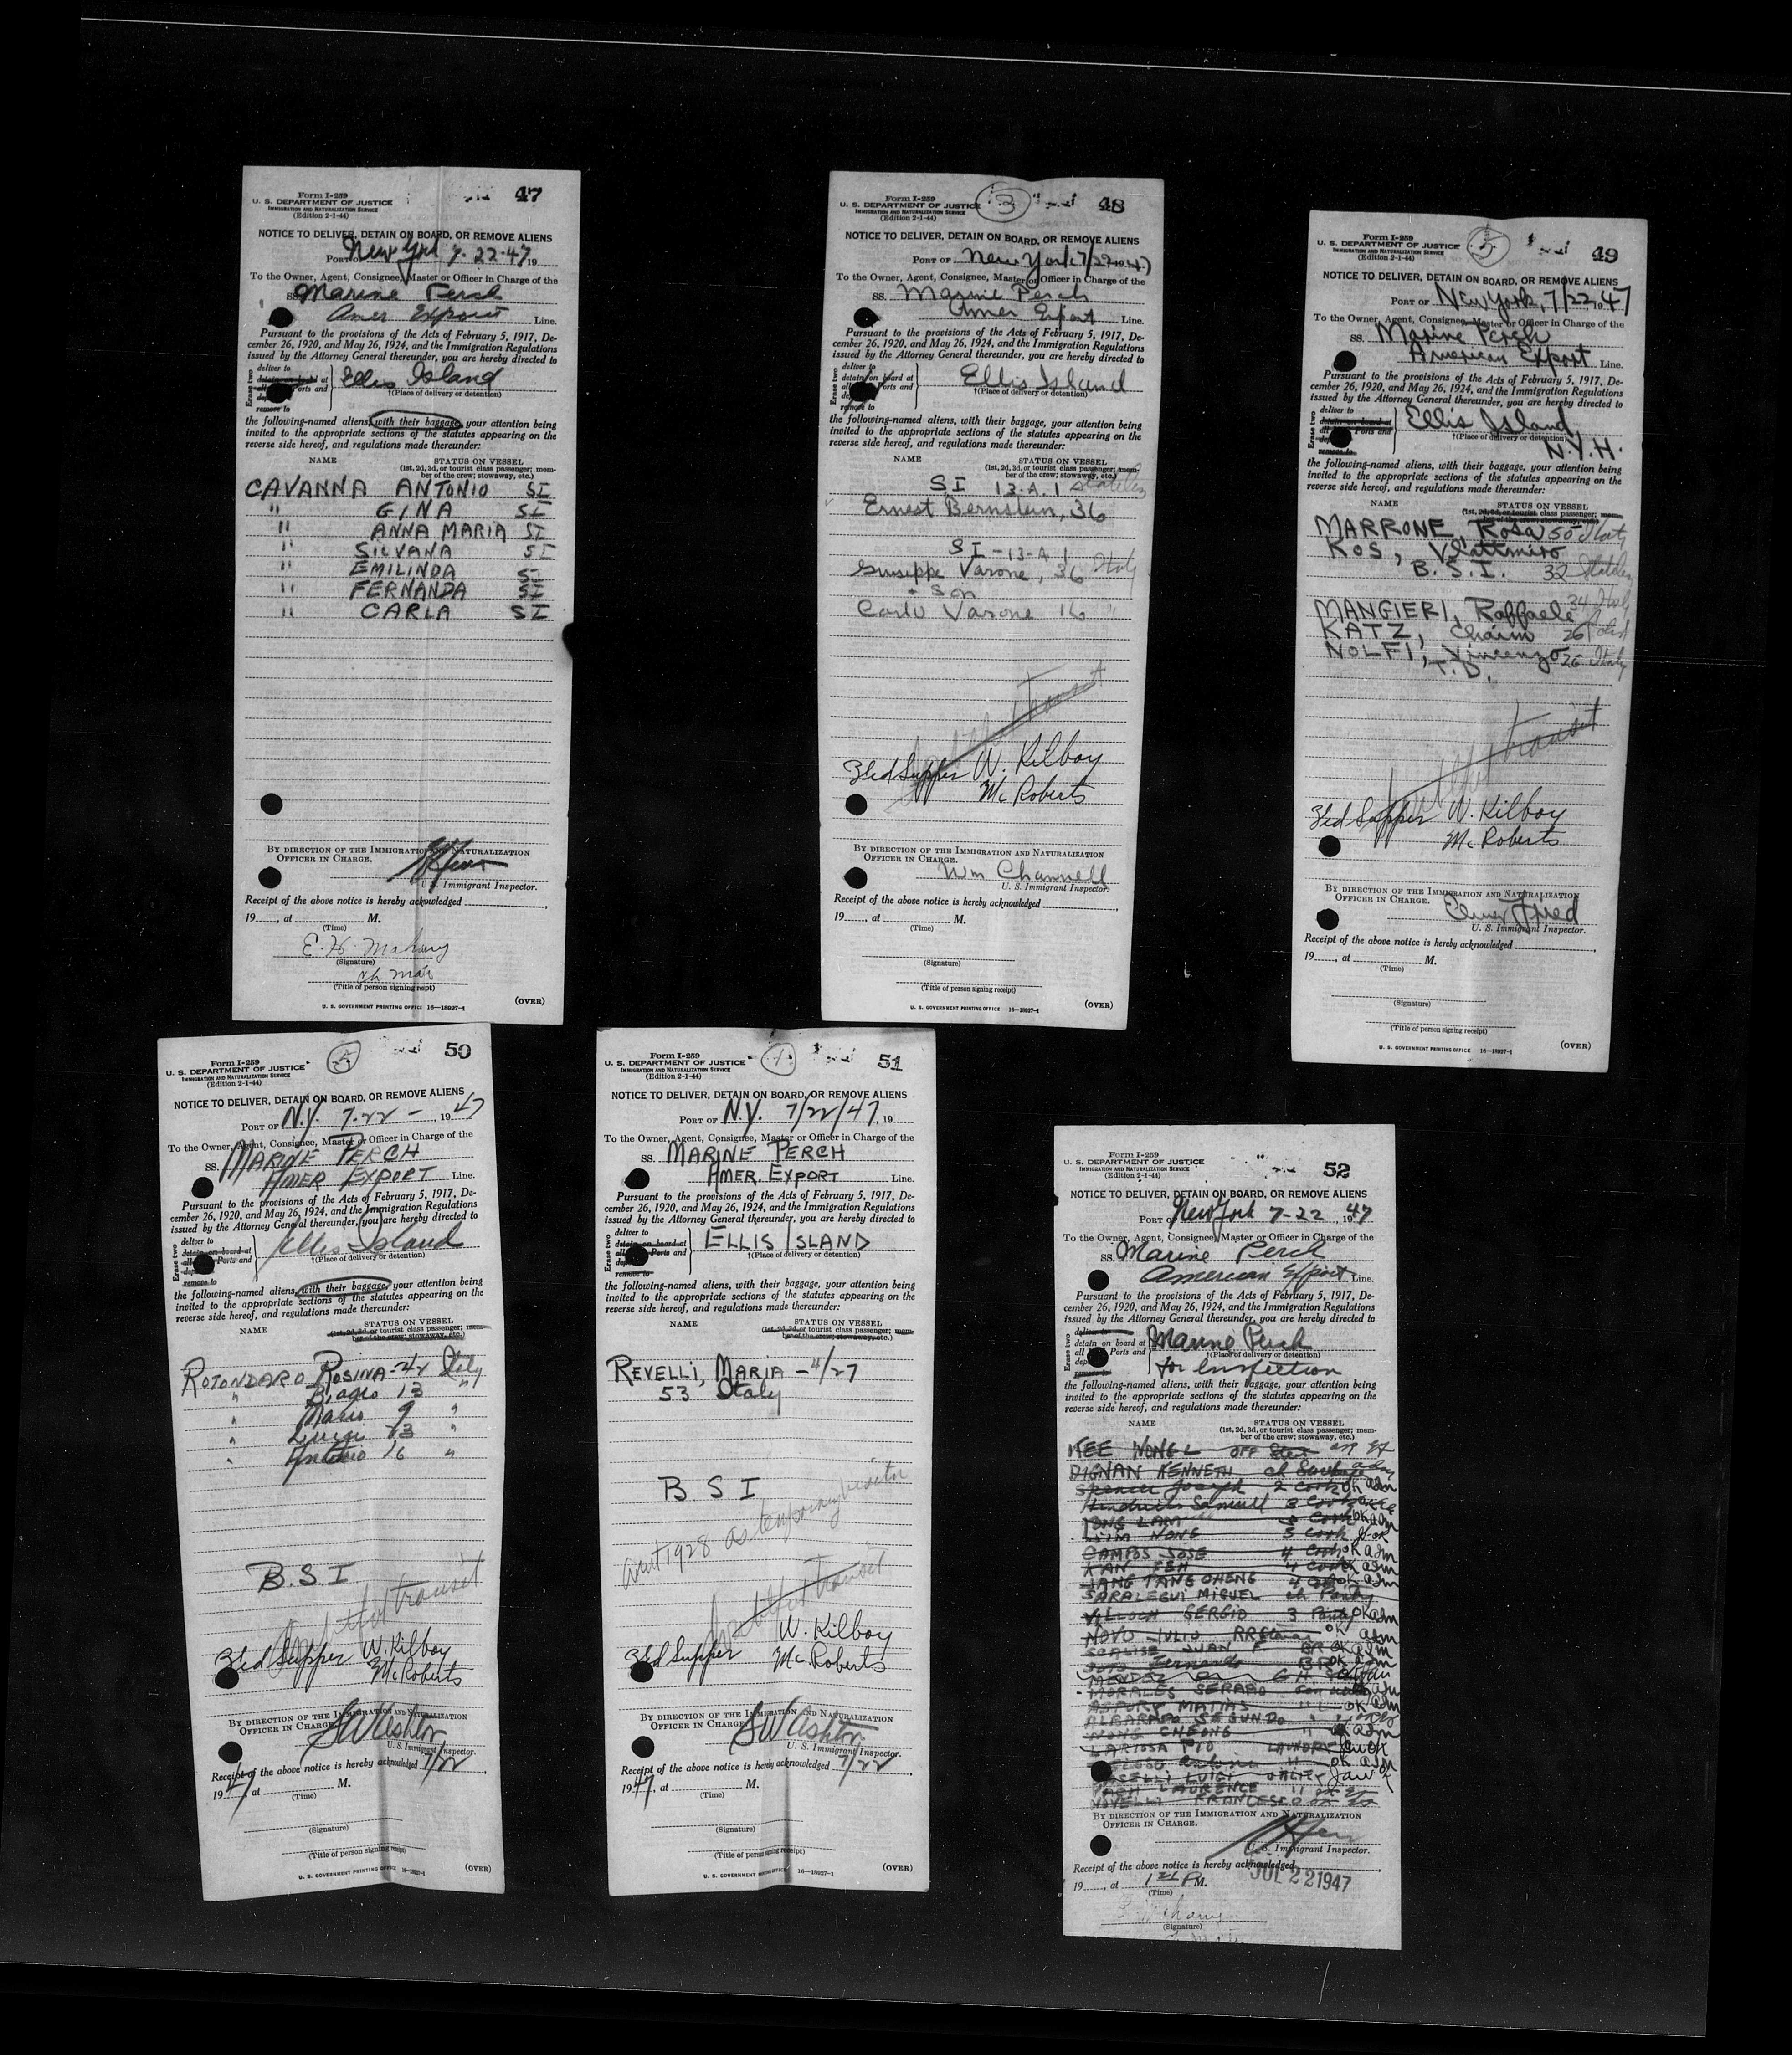 47
Form I-259
U. S. DEPARTMENT OF JUSTICE
IMMIGRATION AND NATURALIZATION SERVICE
(Edition 2-1-44)
NOTICE TO DELIVER, DETAIN ON BOARD, OR REMOVE ALIENS
PORT OF New York 7-22-47, 19
To the Owner, Agent, Consignee, Master or Officer in Charge of the
SS. Marine Perch
Amer Export Line.
Pursuant to the provisions of the Acts of February 5, 1917, De-
cember 26, 1920, and May 26, 1924, and the Immigration Regulations
issued by the Attorney General thereunder, you are hereby directed to
Erase two
deliver to
detain on board at
all Ports and
remove to
Ellis Island
the following-named aliens, with their baggage, your attention being
invited to the appropriate sections of the statutes appearing on the
reverse side hereof, and regulations made thereunder:
NAME STATUS ON VESSEL
(1st, 2d, 3d, or tourist class passenger; mem-
ber of the crew; stowaway, etc.)
CAVANNA ANTONIO SI
" GINA SI
" ANNA MARIA SI
" SILVANA SI
" EMILINDA SI
" FERNANDA SI
" CARLA SI
BY DIRECTION OF THE IMMIGRATION AND NATURALIZATION
OFFICER IN CHARGE.
U. S. Immigrant Inspector.
Receipt of the above notice is hereby acknowledged
19, at M.
(Time)
(Signature)
(Title of person signing receipt)
(OVER)
U. S. GOVERNMENT PRINTING OFFICE 16—18927-1
3 48
Form I-259
U. S. DEPARTMENT OF JUSTICE
IMMIGRATION AND NATURALIZATION SERVICE
(Edition 2-1-44)
NOTICE TO DELIVER, DETAIN ON BOARD, OR REMOVE ALIENS
PORT OF New York 7/22 1947
To the Owner, Agent, Consignee, Master or Officer in Charge of the
SS. Marine Perch
Amer Export Line.
Pursuant to the provisions of the Acts of February 5, 1917, De-
cember 26, 1920, and May 26, 1924, and the Immigration Regulations
issued by the Attorney General thereunder, you are hereby directed to
Erase two
deliver to
detain on board at
all Ports and
remove to
Ellis Island
†(Place of delivery or detention)
the following-named aliens, with their baggage, your attention being
invited to the appropriate sections of the statutes appearing on the
reverse side hereof, and regulations made thereunder:
NAME STATUS ON VESSEL
(1st, 2d, 3d, or tourist class passenger; mem-
ber of the crew; stowaway, etc.)
SI 13-A.1
Ernest Bernstein, 36
SI-13-A 1
Giuseppe Varone, 36 Italy
+ Son
Carlo Varone 16 "
transit
3 fed Supper W. Kilboy
McRoberts
BY DIRECTION OF THE IMMIGRATION AND NATURALIZATION
OFFICER IN CHARGE.
Wm Channell
U. S. Immigrant Inspector.
Receipt of the above notice is hereby acknowledged
19, at M.
(Time)
(Signature)
(Title of person signing receipt)
(OVER)
U. S. GOVERNMENT PRINTING OFFICE 16—18927-1
5 49
Form I-259
U. S. DEPARTMENT OF JUSTICE
IMMIGRATION AND NATURALIZATION SERVICE
(Edition 2-1-44)
NOTICE TO DELIVER, DETAIN ON BOARD, OR REMOVE ALIENS
PORT OF New York, 7/22 1947
To the Owner, Agent, Consignee, Master or Officer in Charge of the
SS. Marine Perch
American Export Line.
Pursuant to the provisions of the Acts of February 5, 1917, De-
cember 26, 1920, and May 26, 1924, and the Immigration Regulations
issued by the Attorney General thereunder, you are hereby directed to
Erase two
deliver to
detain on board at
all Ports and
remove to
Ellis Island,
†(Place of delivery or detention)
N.Y.H.
the following-named aliens, with their baggage, your attention being
invited to the appropriate sections of the statutes appearing on the
reverse side hereof, and regulations made thereunder:
NAME STATUS ON VESSEL
(1st, 2d, 3d, or tourist class passenger; mem-
ber of the crew; stowaway, etc.)
MARRONE, Rosa 50 Italy
KOS, Vlattimiro
B.S.I. 32
MANGIERI, Raffaele 34 Italy
KATZ, Chaim 26
NOLFI, Vincenzo 26 Italy
T.D.
transit
3 fed Supper W. Kilboy
McRoberts
BY DIRECTION OF THE IMMIGRATION AND NATURALIZATION
OFFICER IN CHARGE.
U. S. Immigrant Inspector.
Receipt of the above notice is hereby acknowledged
19, at M.
(Time)
(Signature)
(Title of person signing receipt)
(OVER)
U. S. GOVERNMENT PRINTING OFFICE 16—18927-1
5 50
Form I-259
U. S. DEPARTMENT OF JUSTICE
IMMIGRATION AND NATURALIZATION SERVICE
(Edition 2-1-44)
NOTICE TO DELIVER, DETAIN ON BOARD, OR REMOVE ALIENS
PORT OF N.Y. 7-22-, 1947
To the Owner, Agent, Consignee, Master or Officer in Charge of the
SS. MARINE PERCH
AMER EXPORT Line.
Pursuant to the provisions of the Acts of February 5, 1917, De-
cember 26, 1920, and May 26, 1924, and the Immigration Regulations
issued by the Attorney General thereunder, you are hereby directed to
Erase two
deliver to
detain on board at
all Ports and
remove to
Ellis Island
†(Place of delivery or detention)
the following-named aliens, with their baggage, your attention being
invited to the appropriate sections of the statutes appearing on the
reverse side hereof, and regulations made thereunder:
NAME STATUS ON VESSEL
(1st, 2d, 3d, or tourist class passenger; mem-
ber of the crew; stowaway, etc.)
ROTONDARO ROSINA-42 Italy
" Biagio 13 "
" Mario 9 "
" Luigi 13 "
" Antonio 16 "
B.S.I
transit
3 fed Supper W. Kilboy
McRoberts
BY DIRECTION OF THE IMMIGRATION AND NATURALIZATION
OFFICER IN CHARGE.
SW Ashton
U. S. Immigrant Inspector.
Receipt of the above notice is hereby acknowledged 7/22
1947, at M.
(Time)
(Signature)
(Title of person signing receipt)
(OVER)
U. S. GOVERNMENT PRINTING OFFICE 16—18927-1
1 51
Form I-259
U. S. DEPARTMENT OF JUSTICE
IMMIGRATION AND NATURALIZATION SERVICE
(Edition 2-1-44)
NOTICE TO DELIVER, DETAIN ON BOARD, OR REMOVE ALIENS
PORT OF N.Y. 7/22/47, 19
To the Owner, Agent, Consignee, Master or Officer in Charge of the
SS. MARINE PERCH
AMER. EXPORT Line.
Pursuant to the provisions of the Acts of February 5, 1917, De-
cember 26, 1920, and May 26, 1924, and the Immigration Regulations
issued by the Attorney General thereunder, you are hereby directed to
Erase two
deliver to
detain on board at
all Ports and
remove to
ELLIS ISLAND
†(Place of delivery or detention)
the following-named aliens, with their baggage, your attention being
invited to the appropriate sections of the statutes appearing on the
reverse side hereof, and regulations made thereunder:
NAME STATUS ON VESSEL
(1st, 2d, 3d, or tourist class passenger; mem-
ber of the crew; stowaway, etc.)
REVELLI, MARIA - 4/27
53 Italy
B S I
1928 as temporary visitor
transit
W. Kilboy
3 fed Supper McRoberts
BY DIRECTION OF THE IMMIGRATION AND NATURALIZATION
OFFICER IN CHARGE.
SW Ashton
U. S. Immigrant Inspector.
Receipt of the above notice is hereby acknowledged 7/22
1947, at M.
(Time)
(Signature)
(Title of person signing receipt)
(OVER)
U. S. GOVERNMENT PRINTING OFFICE 16—18927-1
52
Form I-259
U. S. DEPARTMENT OF JUSTICE
IMMIGRATION AND NATURALIZATION SERVICE
(Edition 2-1-44)
NOTICE TO DELIVER, DETAIN ON BOARD, OR REMOVE ALIENS
PORT OF New York 7-22, 1947
To the Owner, Agent, Consignee, Master or Officer in Charge of the
SS. Marine Perch
American Export Line.
Pursuant to the provisions of the Acts of February 5, 1917, De-
cember 26, 1920, and May 26, 1924, and the Immigration Regulations
issued by the Attorney General thereunder, you are hereby directed to
Erase two
deliver to
detain on board at
all Ports and
Marine Perch
†(Place of delivery or detention)
for Inspection
the following-named aliens, with their baggage, your attention being
invited to the appropriate sections of the statutes appearing on the
reverse side hereof, and regulations made thereunder:
NAME STATUS ON VESSEL
(1st, 2d, 3d, or tourist class passenger; mem-
ber of the crew; stowaway, etc.)
KEE WONG L OFF
DIGNAN KENNETH ch
Spencer Joseph 2 Cook OK adm
Samuel 3 Cook
TONG LAM Cook OK adm
WONG 3 Cook OK
CAMPOS JOSE 4 Cook OK adm
KAN FEH 4 Cook OK adm
JANG TANG CHENG 4 OK adm
SARALEGUI MIGUEL ch Pantry
VILLOCH SERGIO 3 Pantry OK adm
NOVO JULIO OK adm
SCALISE JUAN F BR OK adm
SOTO Fernando BR OK adm
MENDEZ
MORALES SERAPO adm
ASBURY MATIAS " OK adm
ALBARADO SEGUNDO "
WONG CHEONG " OK adm
LARIOSA PIO LAUNDRY
OK adm
LUIGI UTILITY
LAURENCE "
NOVELLI FRANCESCO
BY DIRECTION OF THE IMMIGRATION AND NATURALIZATION
OFFICER IN CHARGE.
U. S. Immigrant Inspector.
Receipt of the above notice is hereby acknowledged
JUL 22 1947
19, at P M.
(Time)
(Signature)